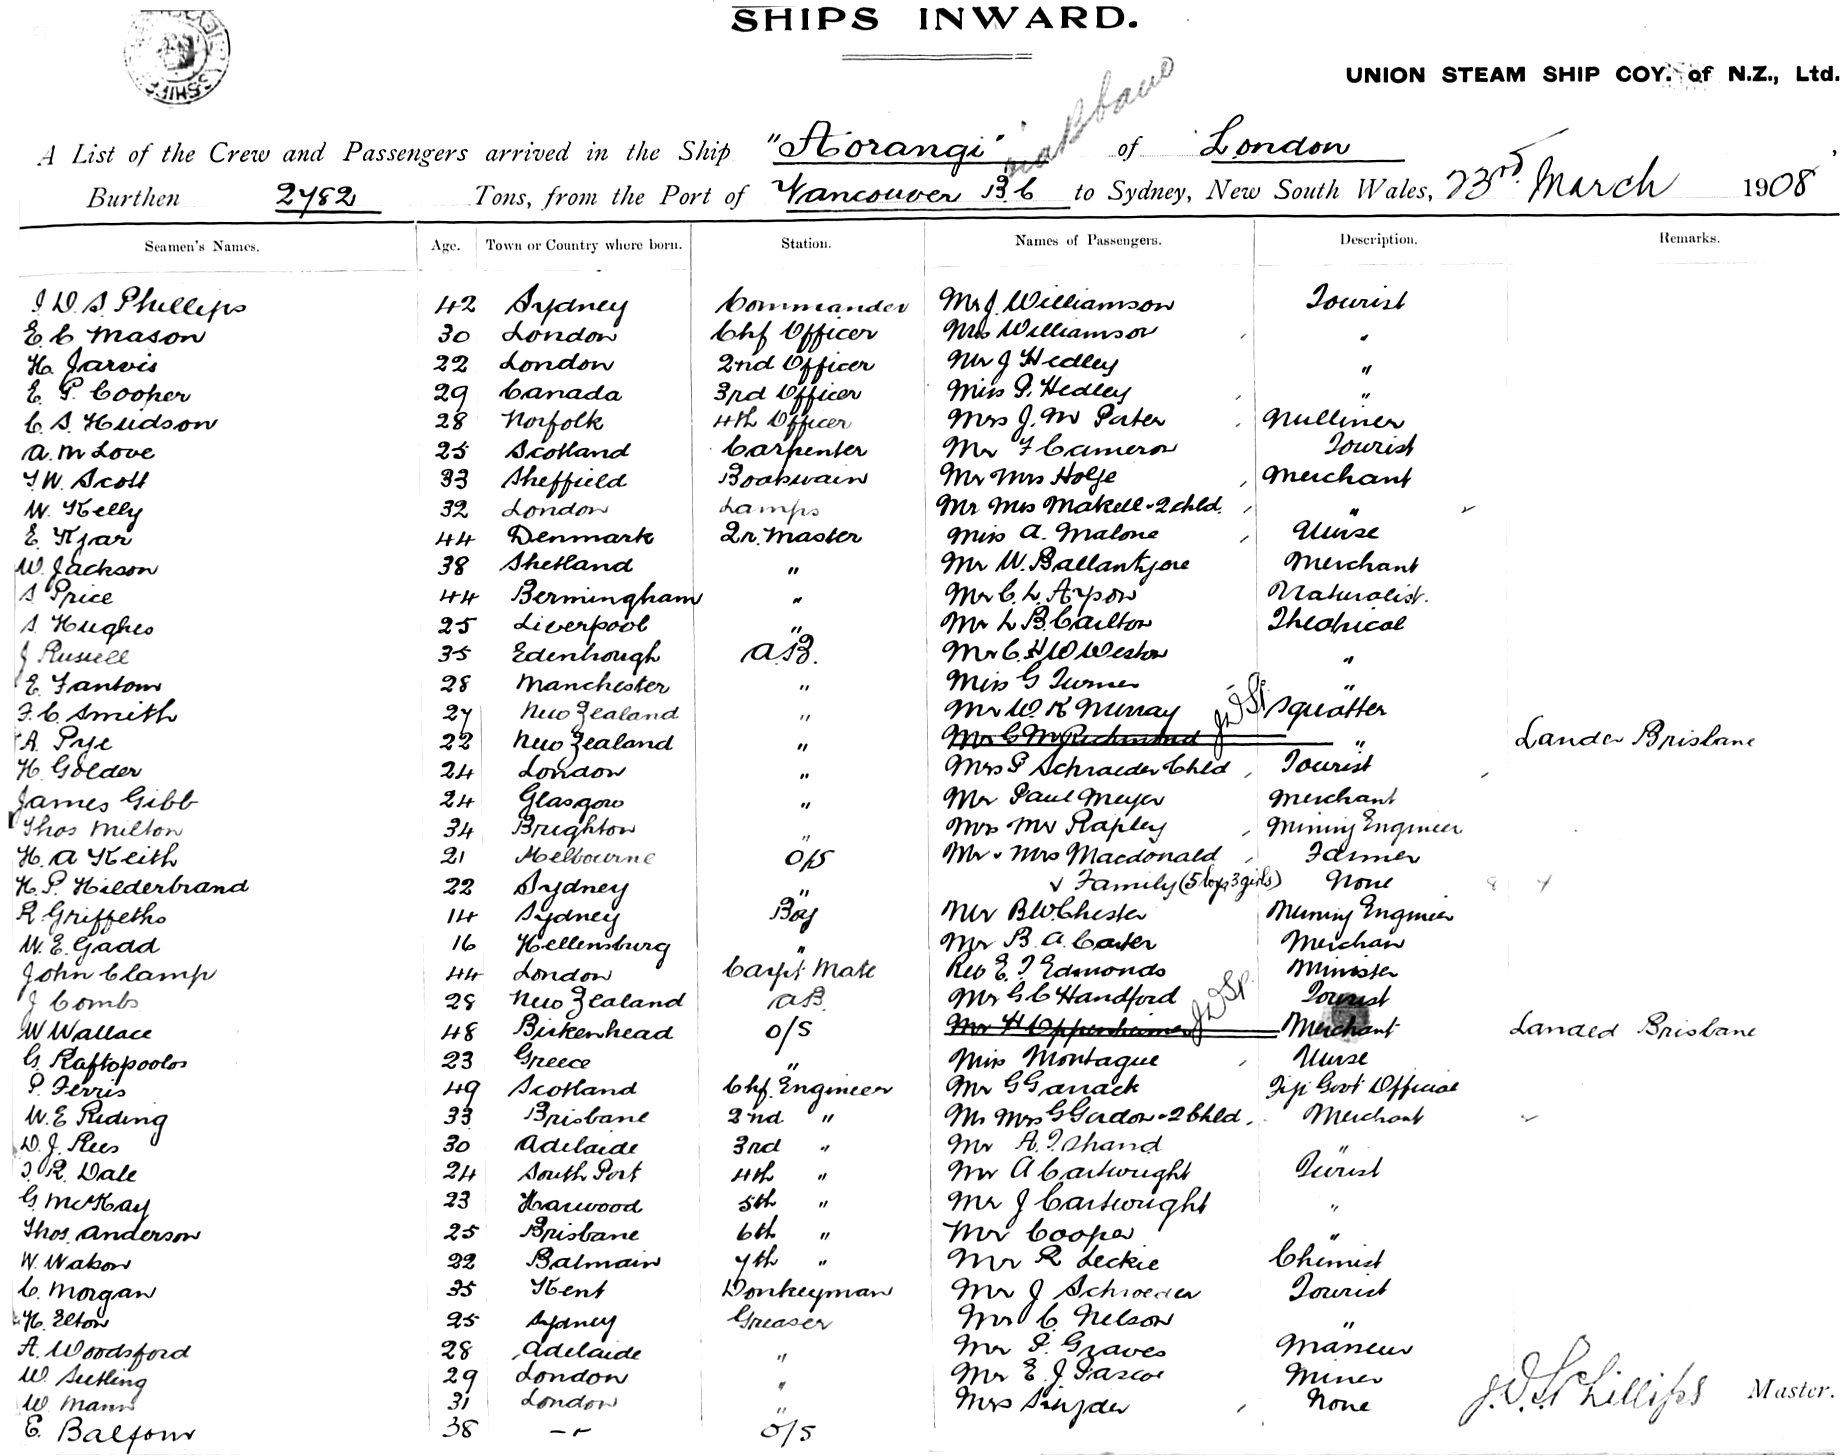 SHIPS INWARD.
UNION STEAM SHIP COY. of N.Z., Ltd.
via Brisbane
A List of the Crew and Passengers arrived in the Ship "Aorangi" of London
Burthen 2782 Tons, from the Port of Vancouver B C to Sydney, New South Wales, 23rd March 1908
Seamen's Names. Age. Town or Country where born. Station. Names of Passengers. Description. Remarks.
J D S Phillips 42 Sydney Commander Mr J. Williamson Tourist
E C Mason 30 London Chf Officer Mrs Williamson "
H. Jarvis 22 London 2nd Officer Mr J Hedley "
E. P. Cooper 29 Canada 3rd Officer Miss P. Hedley "
C. S. Hudson 28 Norfolk 4th Officer Mrs J. M Porter Milliner
A. M Love 25 Scotland Carpenter Mr F Cameron Tourist
T W. Scott 33 Sheffield Boatswain Mr Mrs Holge Merchant
W. Kelly 32 London Lamps Mr Mrs Makell - 2 chld. "
E. Kjar 44 Denmark Qr. Master Miss A. Malone Nurse
W. Jackson 38 Shetland " Mr W. Ballantyne Merchant
S Price 44 Bermingham " Mr C. L. Naturalist.
S. Hughes 25 Liverpool " Mr L B. Carlton Theatrical
J Russell 35 Edenbough A.B. Mr C. H W Weston "
E. Fantom 28 Manchester " Miss G Turner "
F. C. Smith 27 New Zealand " Mr W. K Murray Squatter
A. Pye 22 New Zealand " Mr C McRichmond " Landed Brisbane
H. Golder 24 London " Mrs P Schraeder Chld Tourist
James Gibb 24 Glasgow " Mr Paul Meyer Merchant
Thos Milton 34 Brighton " Mrs Mr Rapley Mining Engineer
H. A Keith 21 Melbourne O/S Mr & Mrs Macdonald Farmer
H. P. Hilderbrand 22 Sydney " & Family (5 boys 3 girls) None
R Griffeths 14 Sydney Boy Mr B W. Chester Mining Engineer
W. E. Gadd 16 Hellensburg " Mr B. A. Carter Merchan
John Clamp 44 London Carpt Mate Rev E. T Edmonds Minister
J Combs 28 New Zealand AB. Mr G C Handford Tourist
W Wallace 48 Birkenhead O/S Mr H Oppenheimer Merchant Landed Brisbane
G. Raftopoolos 23 Greece " Miss Montague Nurse
P. Ferris 49 Scotland Chf. Engineer Mr G Garrack Fiji Govt Official
W. E Riding 33 Brisbane 2nd " Mr Mrs G Gordon - 2 Chld. Merchant
D. J. Rees 30 Adelaide 3rd " Mr A. T. Shand "
T R. Dale 24 South Port 4th " Mr A Cartwright Turist
G. McKay 23 Harwood 5th " Mr J Cartwright "
Thos. Anderson 25 Brisbane 6th " Mr Cooper "
W. Watson 22 Balmain 7th " Mr R Leckie Chemist
C. Morgan 35 Kent Donkeyman Mr J Schroeder Tourist
H. Elton 25 Sydney Greaser Mr C Nelson "
A. Woodsford 28 Adelaide " Mr P. Graves
W. Sutling 29 London " Mr E. J Pascoe Miner
W. Mann 31 London " Mrs Snyder None J. D. S Phillips Master.
E. Balfour 38 — O/S